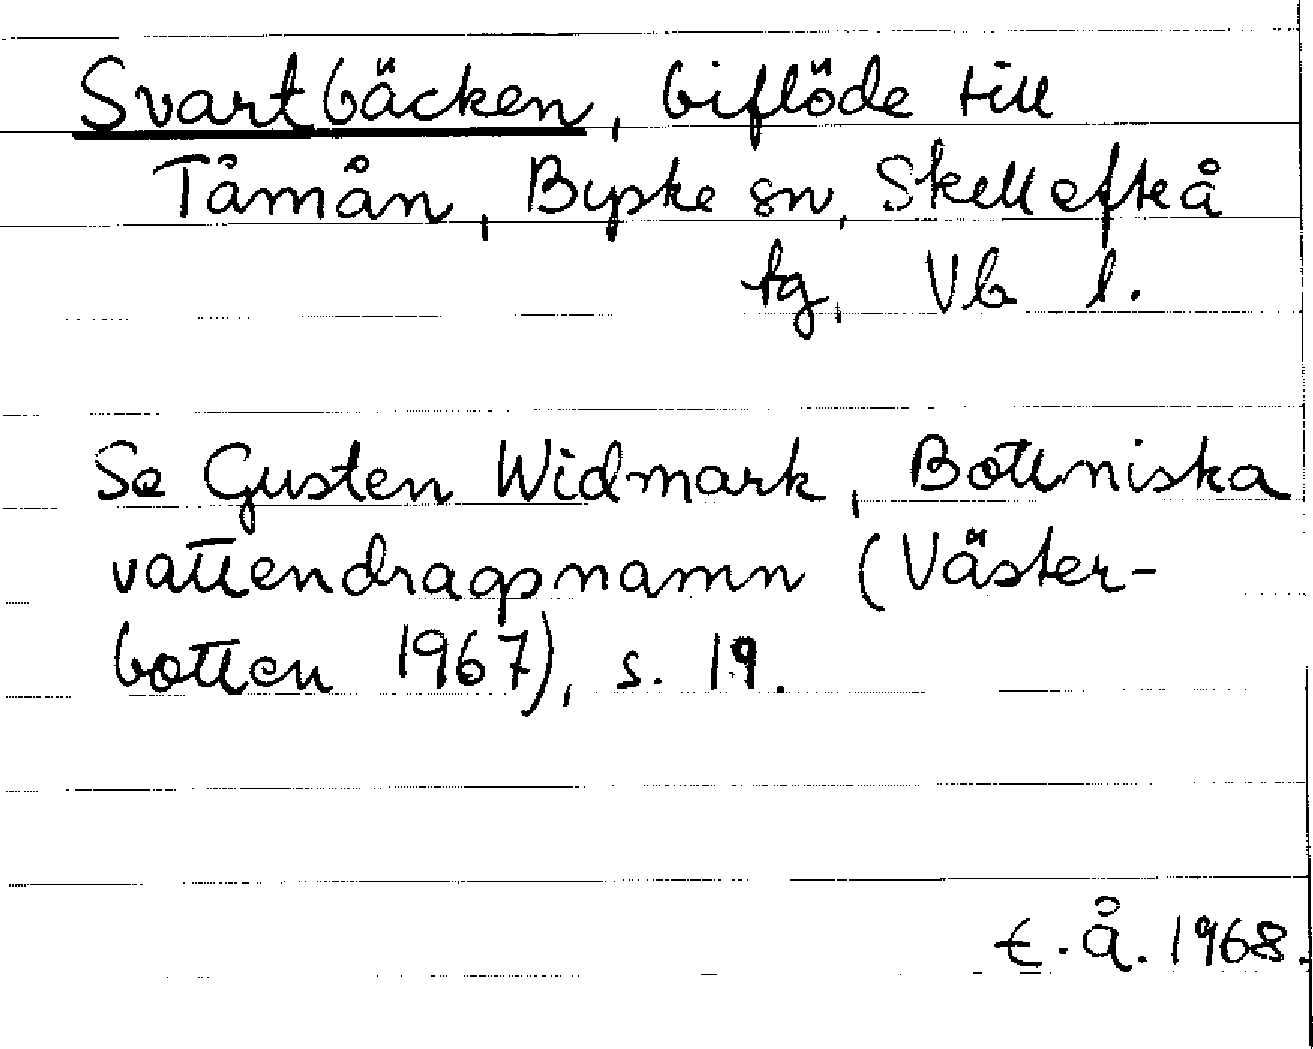 Svartbäcken, biflöde till
Tåmån, Byske sn, Skellefteå
tg, Vb l.
Se Gusten Widmark, Bottniska
vattendragsnamn (Väster-
botten 1967), s. 19.
t. Å. 1968.